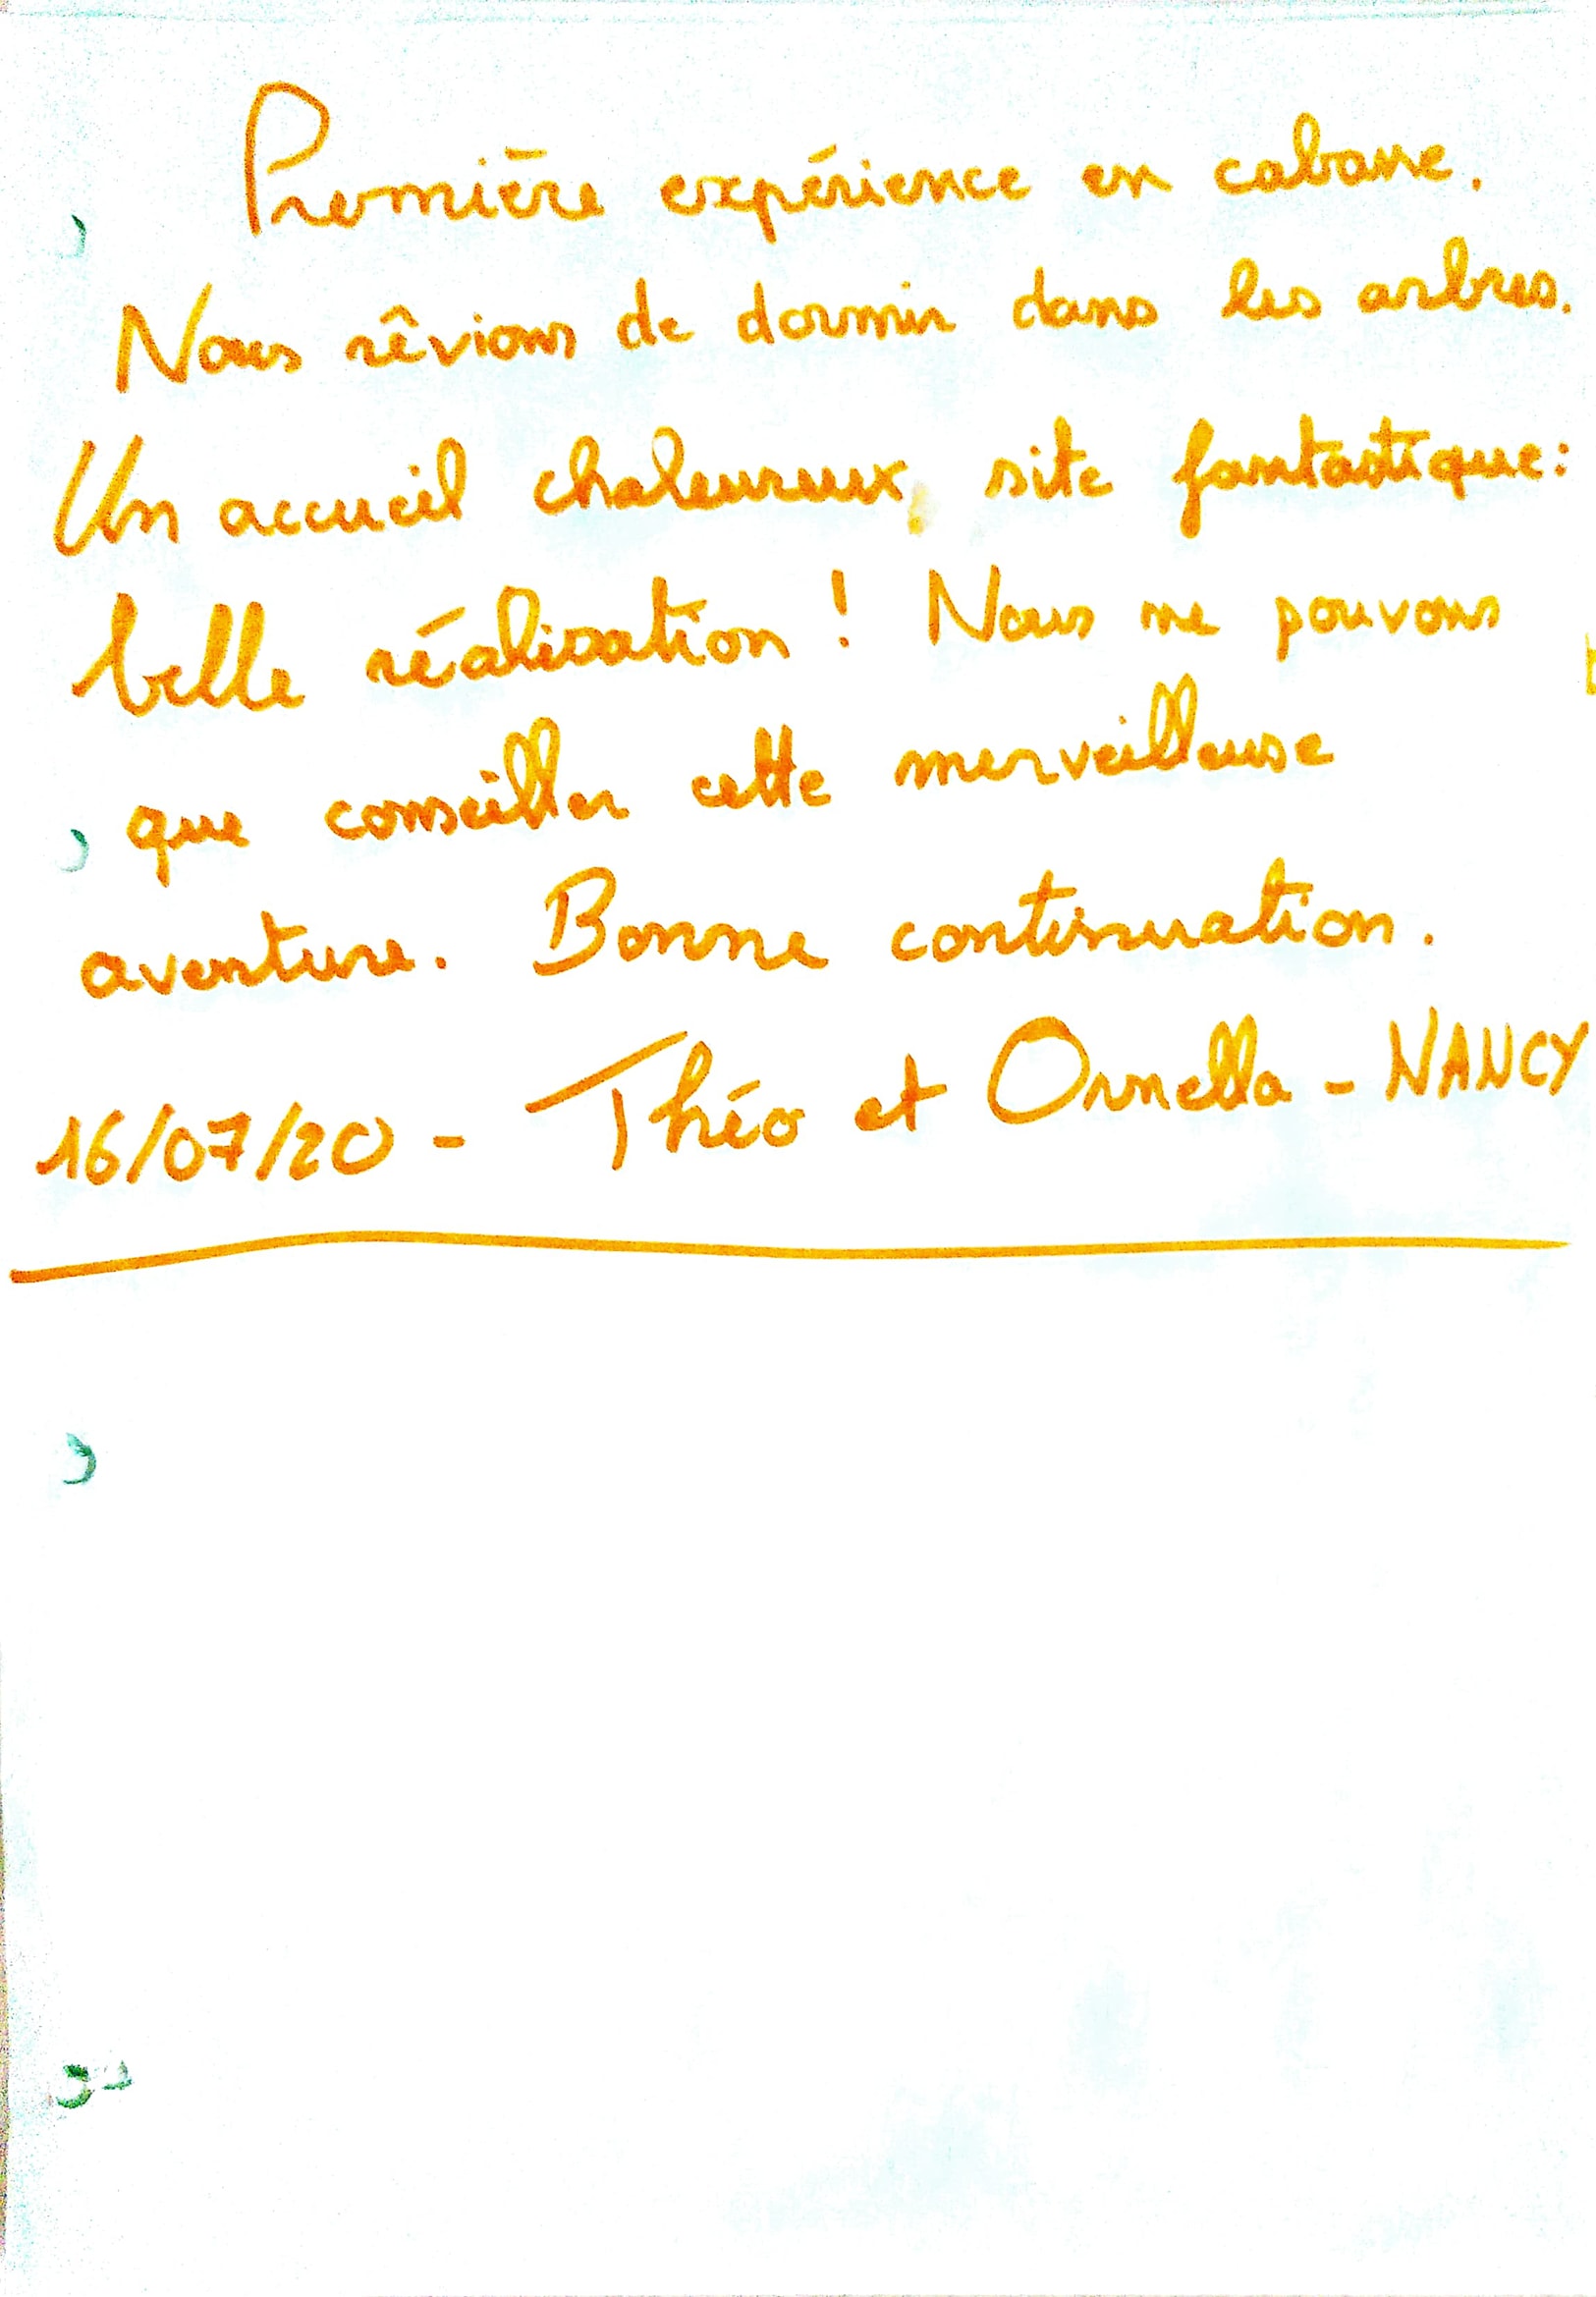 Première expérience en cabane.
Nous rêvions de dormir dans les arbres.
Un accueil chaleureux, site fantastique:
belle réalisation ! Nous ne pouvons
que conseiller cette merveilleuse
aventure. Bonne continuation.
16/07/20 - Théo et Ornella - NANCY